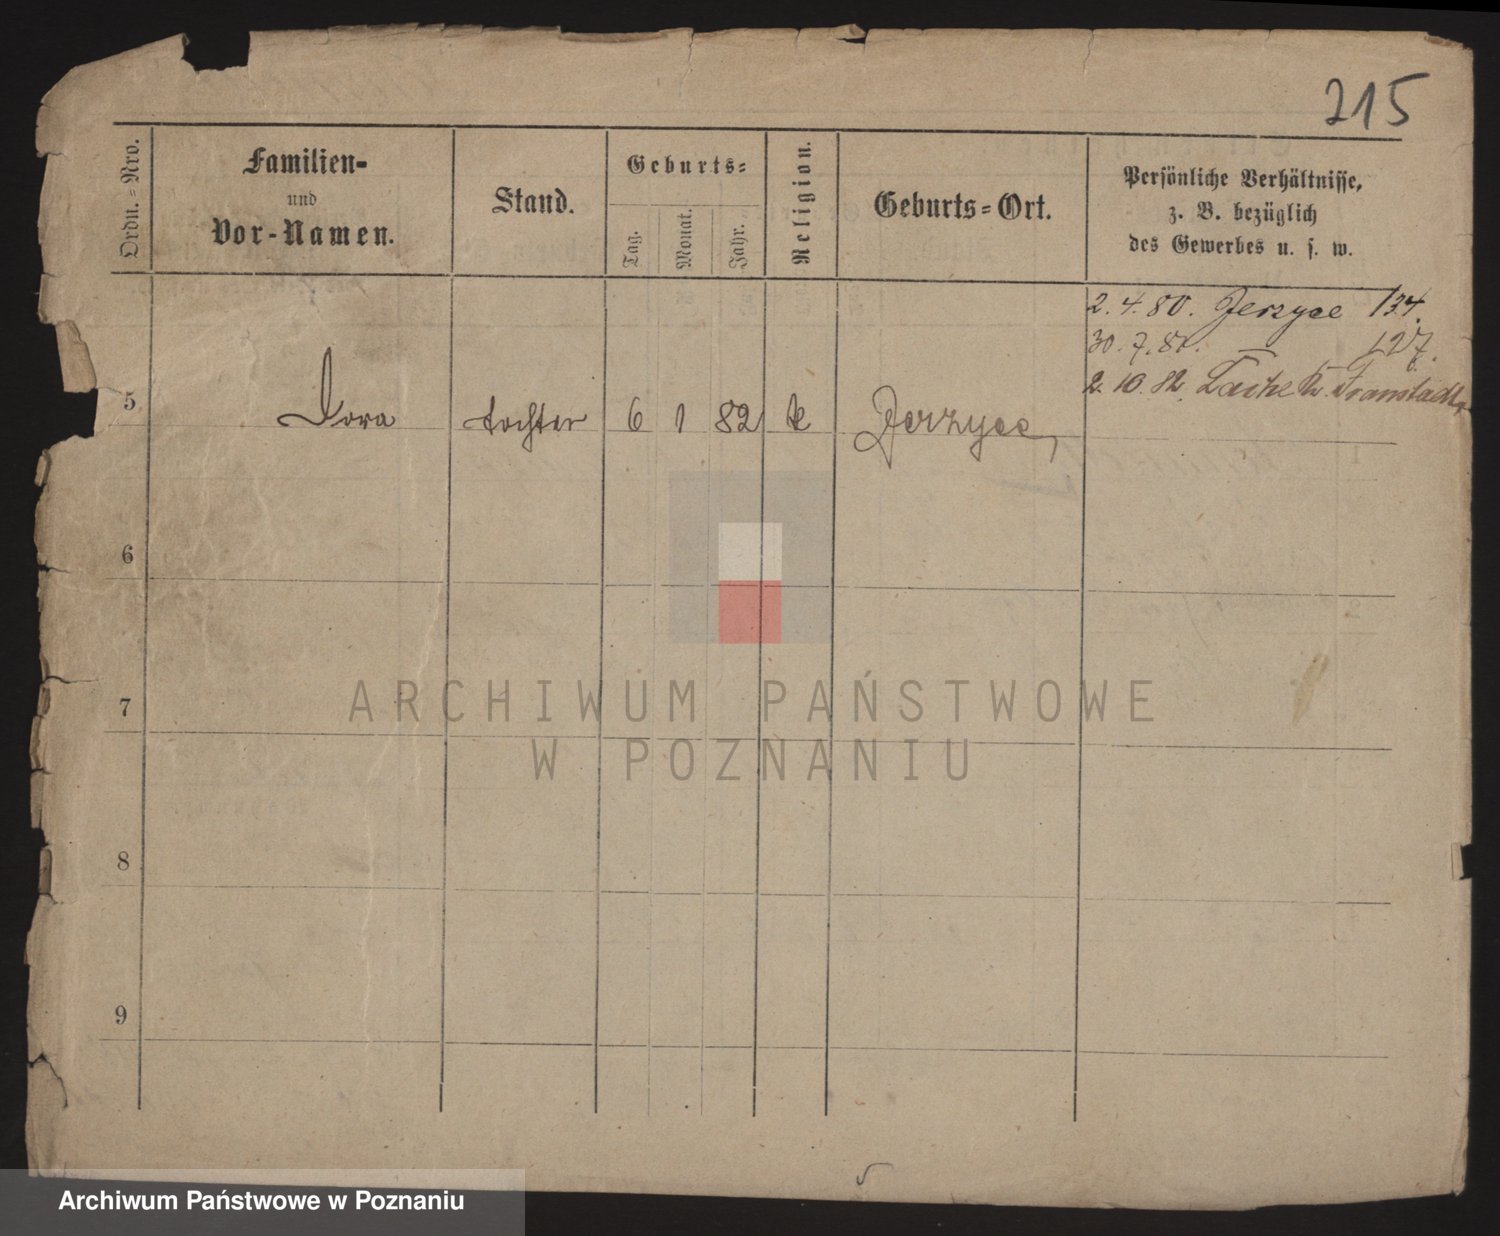 215
Ordn.-Nro.
Familien-
und
Vor-Namen.
Stand.
Geburts-
Tag.
Monat.
Jahr.
Religion.
Geburts-Ort.
Persönliche Verhältnisse,
z. B. bezüglich
des Gewerbes u. s. w.
2. 4. 80. Jerzyce 134.
30. 7. 81. — 127.
2. 10. 82. Kr. Fraustadt
5 Dora tochter 6 1 82 k Jerzyce,
6
7
8
9
ARCHIWUM PAŃSTWOWE
W POZNANIU
Archiwum Państwowe w Poznaniu